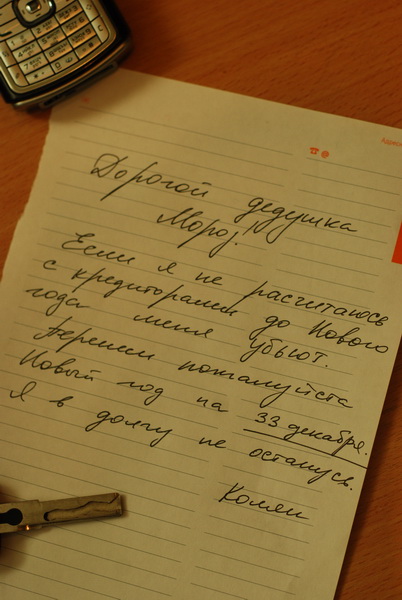 Дорогой дедушка
Мороз!
Если я не расчитаюсь
с кредиторами до Нового
года меня убьют.
Перенеси пожалуйста
Новый год на 33 декабря.
Я в долгу не останусь.
Колян